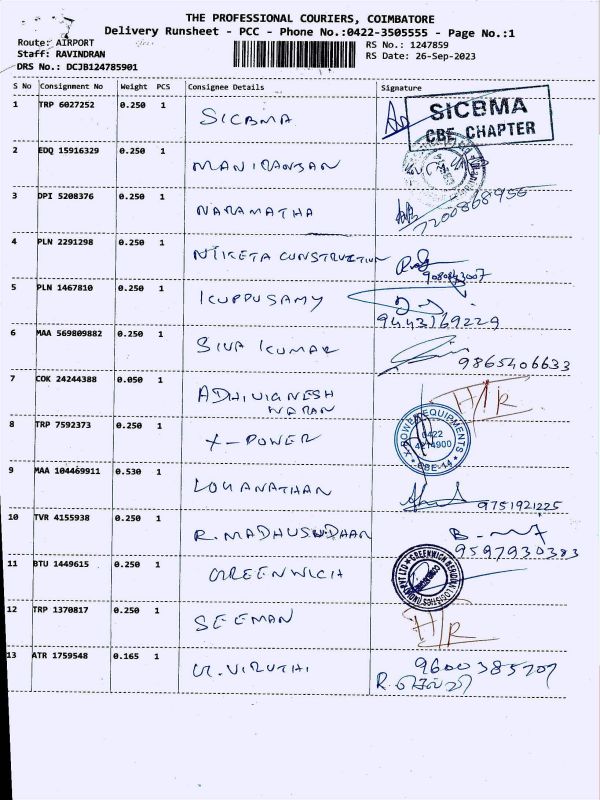 THE PROFESSIONAL COURIERS, COIMBATORE
Delivery Runsheet - PCC - Phone No.:0422-3505555 - Page No.:1
Route: AIRPORT RS No.: 1247859
Staff: RAVINDRAN RS Date: 26-Sep-2023
DRS No.: DCJB124785901
S No Consignment No Weight PCS Consignee Details Signature
1 TRP 6027252 0.250 1 SICBMA SICBMA
CBE CHAPTER
2 EDQ 15916329 0.250 1 MANIRANJAN
3 DPI 5208376 0.250 1 NARAMATHA 7200868956
4 PLN 2291298 0.250 1 NIKETA CONSTRUCTION 9080843007
5 PLN 1467810 0.250 1 KUPPUSAMY 9443169229
6 MAA 569809882 0.250 1 SIVA KUMAR 9865406633
7 COK 24244388 0.050 1 ADHIVIGNESH H/R
8 TRP 7592373 0.250 1 X-POWER X POWER EQUIPMENTS
0422
4214900
CBE-14
9 MAA 104469911 0.530 1 LOGANATHAN 9751921225
10 TVR 4155938 0.250 1 R. MADHUSUDHAN 9597930383
11 BTU 1449615 0.250 1 GREENWICH GREENWICH
12 TRP 1370817 0.250 1 SEEMAN H/R
13 ATR 1759548 0.165 1 9600385207